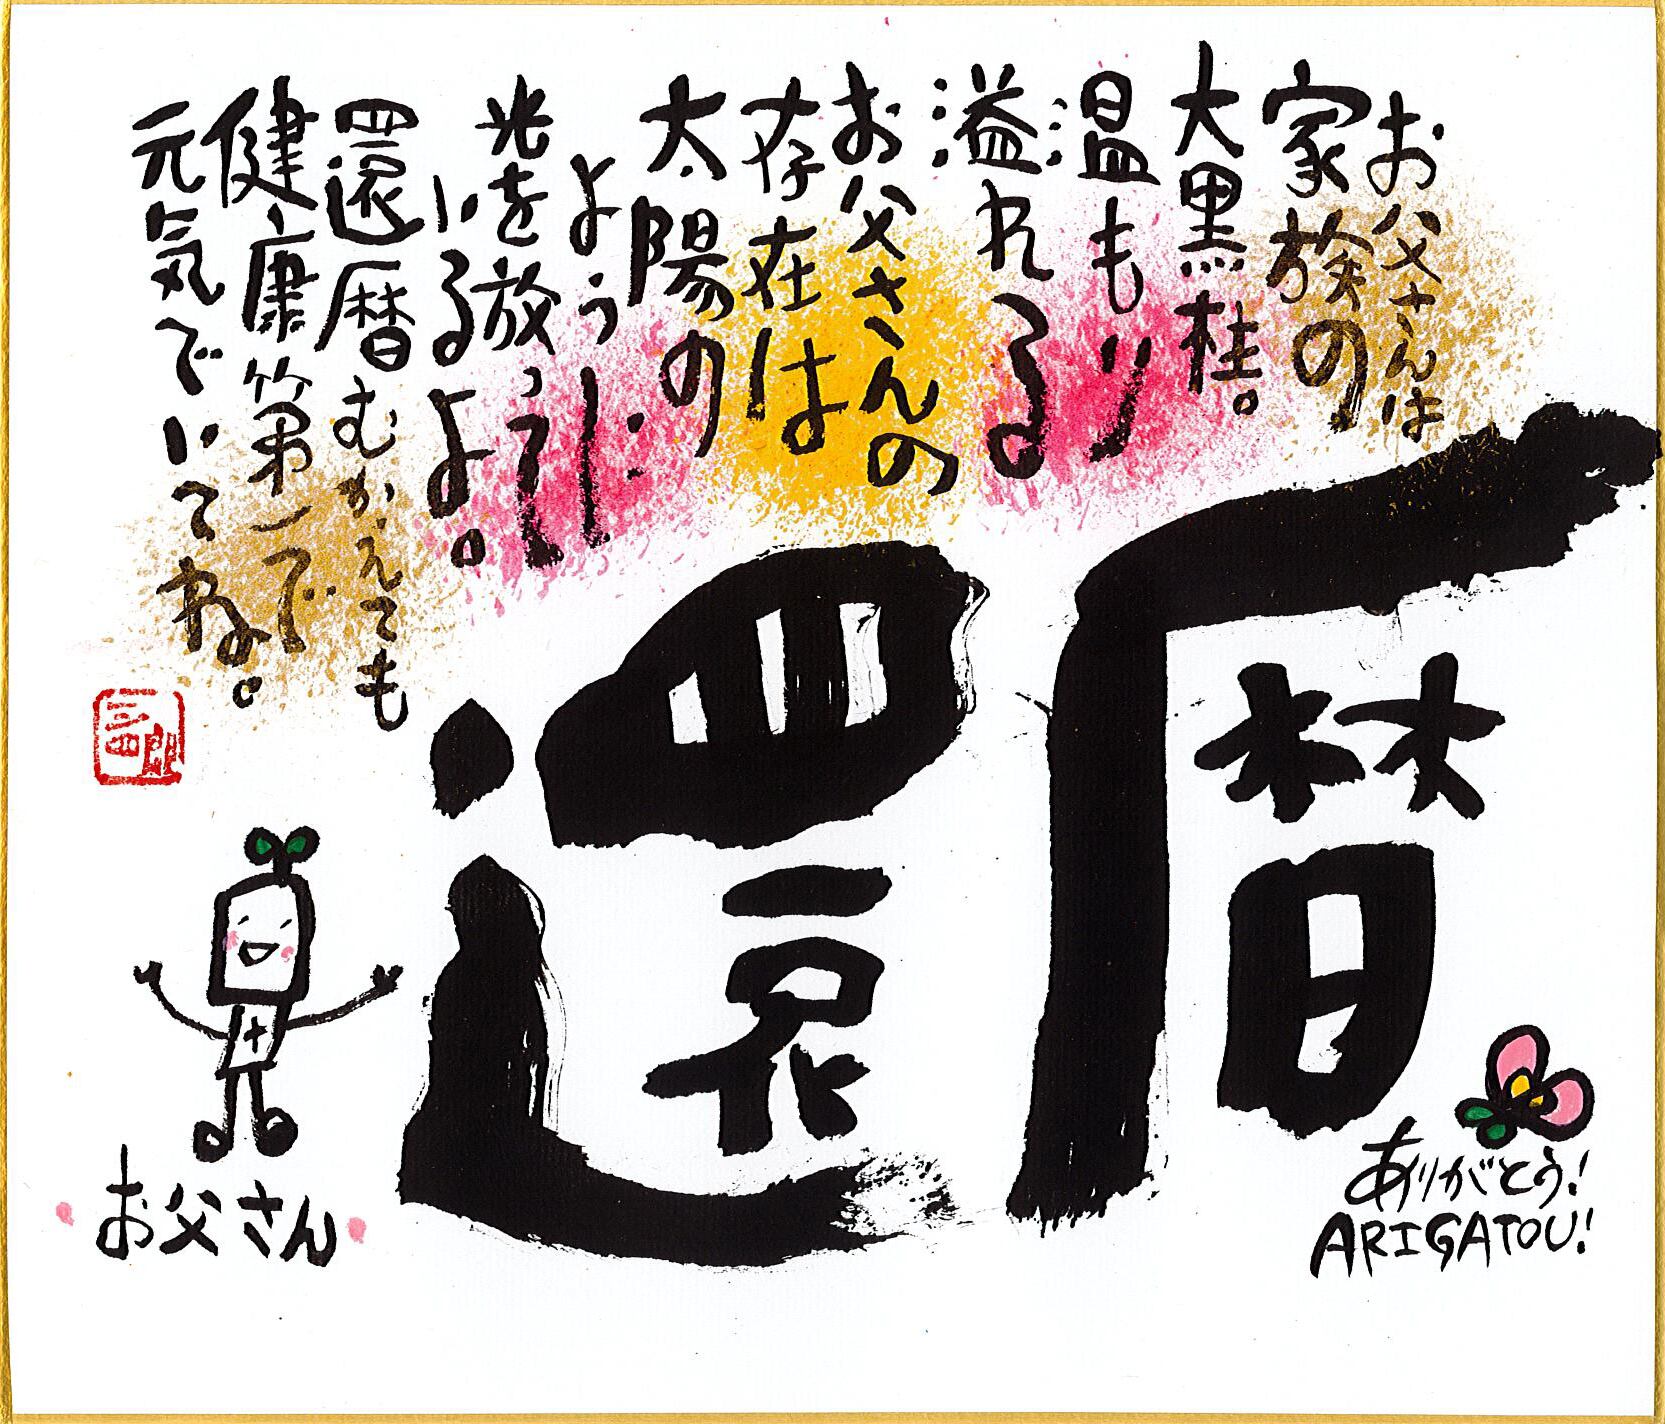 お父さんは
家族の
大黒桂。
温もり
溢れる
お父さんの
存在は
太陽の
ように
光を放って
いるよ。
還暦むかえても
健康第一で
元気でいてね。
還暦
お父さん
ありがとう!
ARIGATOU!